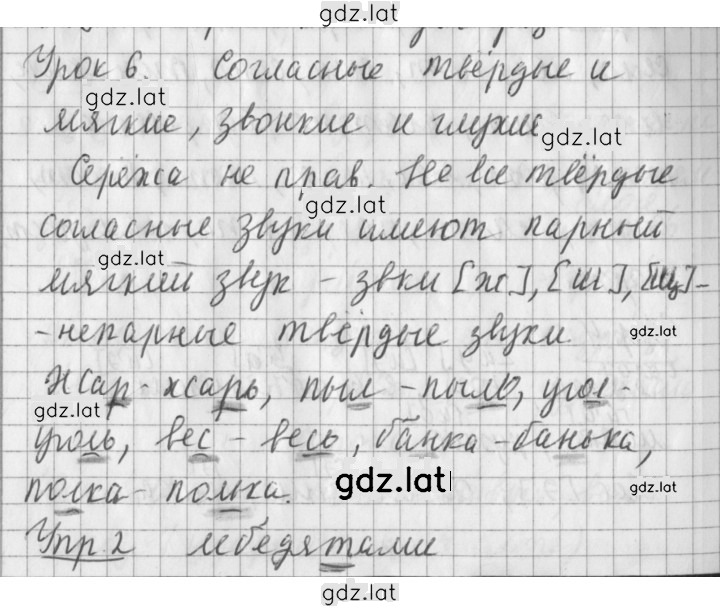 gdz.lat
Урок 6. Согласные твёрдые и
gdz.lat
мягкие, звонкие и глухие
gdz.lat
Серёжа не прав. Не все твёрдые
gdz.lat
согласные звуки имеют парный
gdz.lat
мягкий звук - звки [ж], [ш], [ц]-
-непарные твёрдые звуки.
gdz.lat
Жар-жарь, пыл-пыль, угол-
gdz.lat
уголь, вес-весь, банка-банька,
полка-полька.
gdz.lat
gdz.lat
Упр 2 лебедятами
gdz.lat